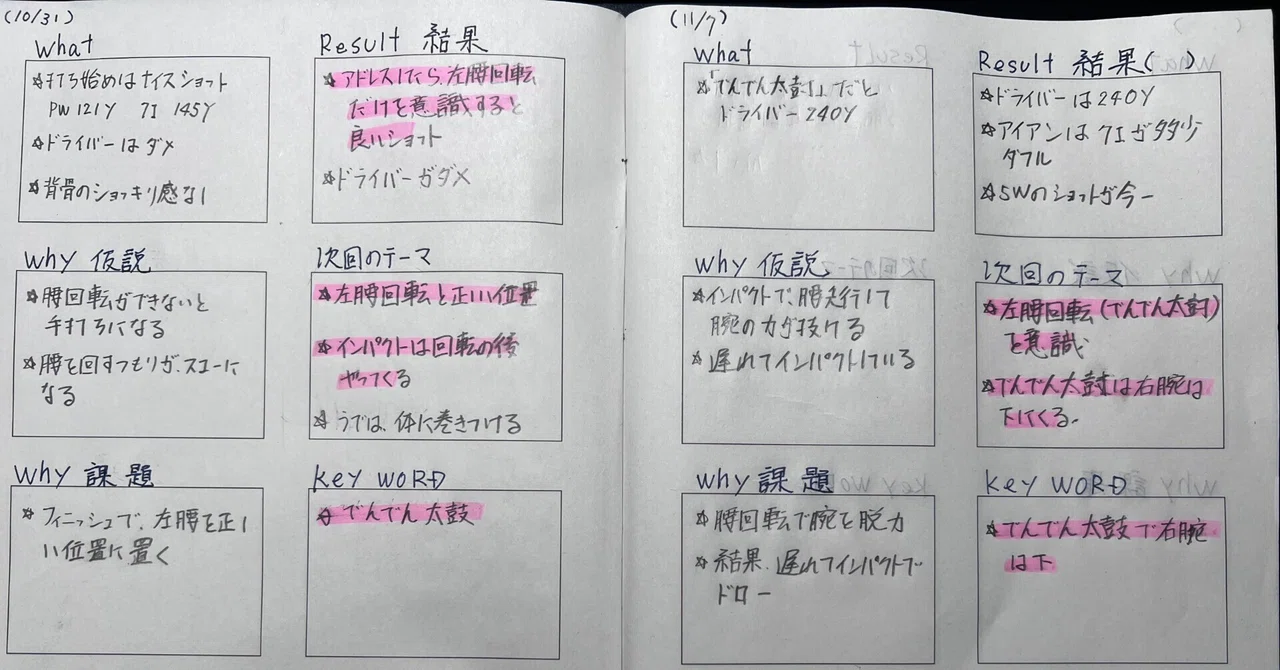 (10/31)
What
☆打ち始めはナイスショット
PW 121Y 7I 145Y
☆ドライバーはダメ
☆背骨のショッキリ感なし
Result 結果
☆アドレスしたら、左腰回転
だけを意識すると
良いショット
☆ドライバーがダメ
Why 仮説
☆腰回転ができないと
手打ちになる
☆腰を回すつもりが、スエーに
なる
次回のテーマ
☆左腰回転と正しい位置
☆インパクトは回転の後
やってくる
☆うでは、体に巻きつける
Why 課題
☆フィニッシュで、左腰を正し
い位置に置く
Key WORD
☆でんでん太鼓
(11/7)
What
☆「でんでん太鼓」だと
ドライバー 240Y
Result 結果( )
☆ドライバーは240Y
☆アイアンは 7Iが多少
ダフル
☆SWのショットが今一
Why 仮説
☆インパクトで、腰先行して
腕の力が抜ける
☆遅れてインパクトしている
次回のテーマ
☆左腰回転(でんでん太鼓)
を意識
☆でんでん太鼓は右腕は
下にくる。
Why 課題
☆腰回転で腕を脱力
☆結果、遅れてインパクトで
ドロー
Key WORD
☆でんでん太鼓で右腕
は下